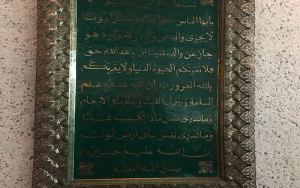 يأيها الناس اتقوا ربكم واخشوا يوما
لا يجزى والد عن ولده ولا مولود هو
جاز عن والده شيئا إن وعد الله حق
فلا تغرنكم الحيوة الدنيا ولا يغرنكم
بالله الغرور إن الله عنده علم
الساعة وينزل الغيث ويعلم ما في الارحام
وما تدرى نفس ماذا تكسب غدا
وما تدرى نفس بأى ارض تموت
إن الله عليم خبير
صدق الله العظيم